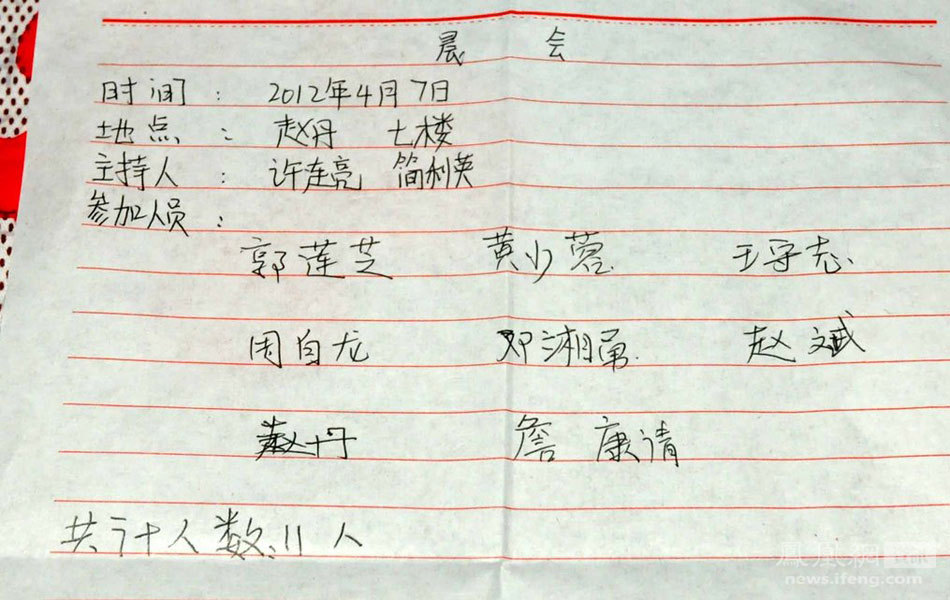 晨 会
时间： 2012年4月7日
地点： 赵丹 七楼
主持人： 许连亮 简利英
参加人员：
郭莲芝 黄少蓉 王守志
周自龙 邓湘勇 赵文斌
赵丹 詹康清
共计人数：11人
凤凰网 资讯
news.ifeng.com